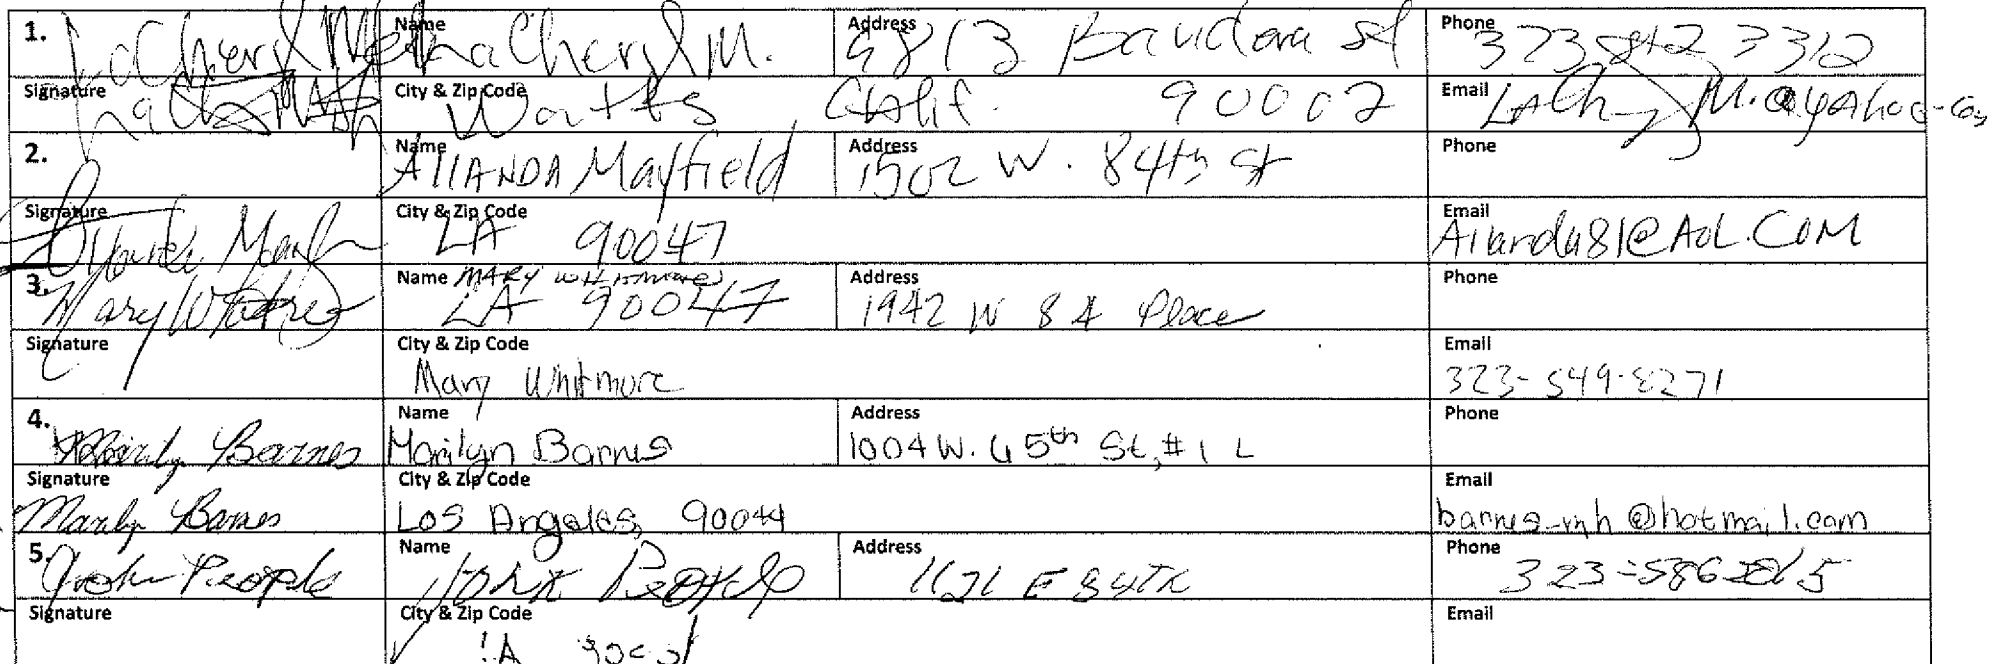 1. Name LaCheryl M. Address 9813 Bandera st Phone 323 812 3312
Signature City & Zip Code Watts Calif. 90002 Email
2. Name AllANDA Mayfield Address 1502 W. 84th St Phone
Signature City & Zip Code LA 90047 Email Allanda81@AOL.COM
3. Name MARY WHITMORE Address 1942 W 84 Place Phone
LA 90047
Signature City & Zip Code Mary Whitmore Email 323-549-8271
4. Marilyn Barnes Name Marilyn Barnes Address 1004 W. 65th St, #1 L Phone
Signature Marilyn Barnes City & Zip Code Los Angeles, 90044 Email barnes-mh@hotmail.com
5. John People Name John People Address 1121 E 84th Phone 323-586
Signature City & Zip Code LA Email